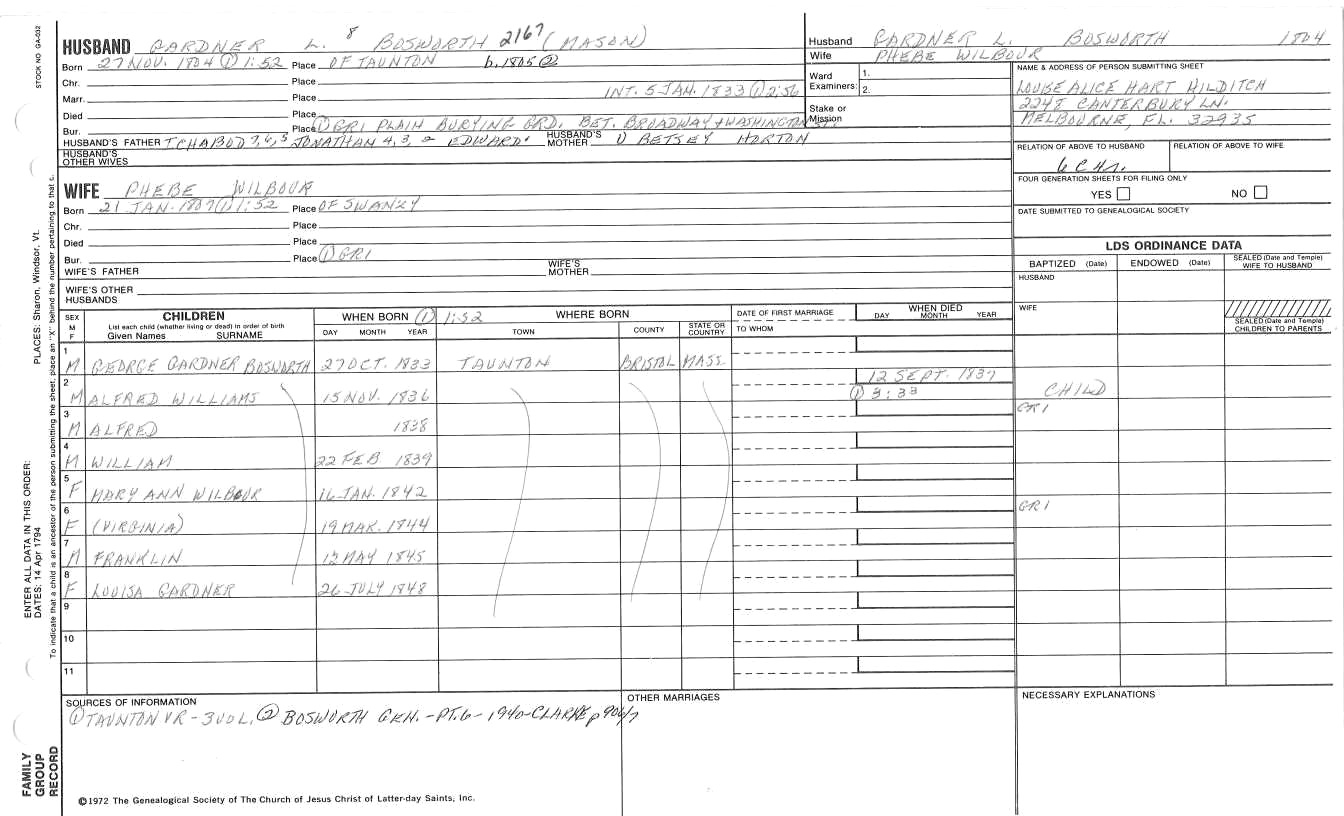 STOCK NO GA-032
HUSBAND GARDNER L. 8 BOSWORTH 2167 (MASON)
Born 27 NOV. 1804 ① 1:52 Place OF TAUNTON b. 1805 ②
Chr. Place
Marr. Place INT. 5 JAN. 1833 ① 2:56
Died Place
Bur. Place ① GRI PLAIN BURYING GRD, BET. BROADWAY + WASHINGTON ST.
HUSBAND'S FATHER ICHABOD 7,6,5 JONATHAN 4,3,2 EDWARD 1 HUSBAND'S MOTHER ① BETSEY HORTON
HUSBAND'S OTHER WIVES
WIFE PHEBE WILBOUR
Born 21 JAN. 1807 ① 1:52 Place OF SWANZY
Chr. Place
Died Place
Bur. Place ① GRI
WIFE'S FATHER WIFE'S MOTHER
WIFE'S OTHER HUSBANDS
Husband GARDNER L. BOSWORTH 1804
Wife PHEBE WILBOUR
Ward Examiners: 1.
2.
Stake or Mission
NAME & ADDRESS OF PERSON SUBMITTING SHEET
LOUISE ALICE HART HILDITCH
2248 CANTERBURY LN.
MELBOURNE, FL. 32935
RELATION OF ABOVE TO HUSBAND RELATION OF ABOVE TO WIFE
6 C
FOUR GENERATION SHEETS FOR FILING ONLY
YES NO
DATE SUBMITTED TO GENEALOGICAL SOCIETY
LDS ORDINANCE DATA
BAPTIZED (Date) ENDOWED (Date) SEALED (Date and Temple) WIFE TO HUSBAND
HUSBAND
WIFE
SEALED (Date and Temple) CHILDREN TO PARENTS
SEX M F CHILDREN List each child (whether living or dead) in order of birth Given Names SURNAME
WHEN BORN ① 1:52 DAY MONTH YEAR
WHERE BORN TOWN COUNTY STATE OR COUNTRY
DATE OF FIRST MARRIAGE TO WHOM
WHEN DIED DAY MONTH YEAR
1 M GEORGE GARDNER BOSWORTH 27 OCT. 1833 TAUNTON BRISTOL MASS.
2 M ALFRED WILLIAMS 15 NOV. 1836 12 SEPT. 1837 ① 3:33 CHILD
3 M ALFRED 1838 GRI
4 M WILLIAM 22 FEB 1839
5 F MARY ANN WILBOUR 16 JAN. 1842
6 F (VIRGINIA) 19 MAR. 1844 GRI
7 M FRANKLIN 12 MAY 1845
8 F LOUISA GARDNER 26 JULY 1848
9
10
11
SOURCES OF INFORMATION
① TAUNTON VR - 3 VOL. ② BOSWORTH GEN. - PT. 6 - 1940 - CLARKE p 906/7
OTHER MARRIAGES
NECESSARY EXPLANATIONS
©1972 The Genealogical Society of The Church of Jesus Christ of Latter-day Saints, Inc.
FAMILY GROUP RECORD
ENTER ALL DATA IN THIS ORDER:
DATES: 14 Apr 1794
PLACES: Sharon, Windsor, Vt.
To indicate that a child is an ancestor of the person submitting the sheet, place an "X" behind the number pertaining to that c.